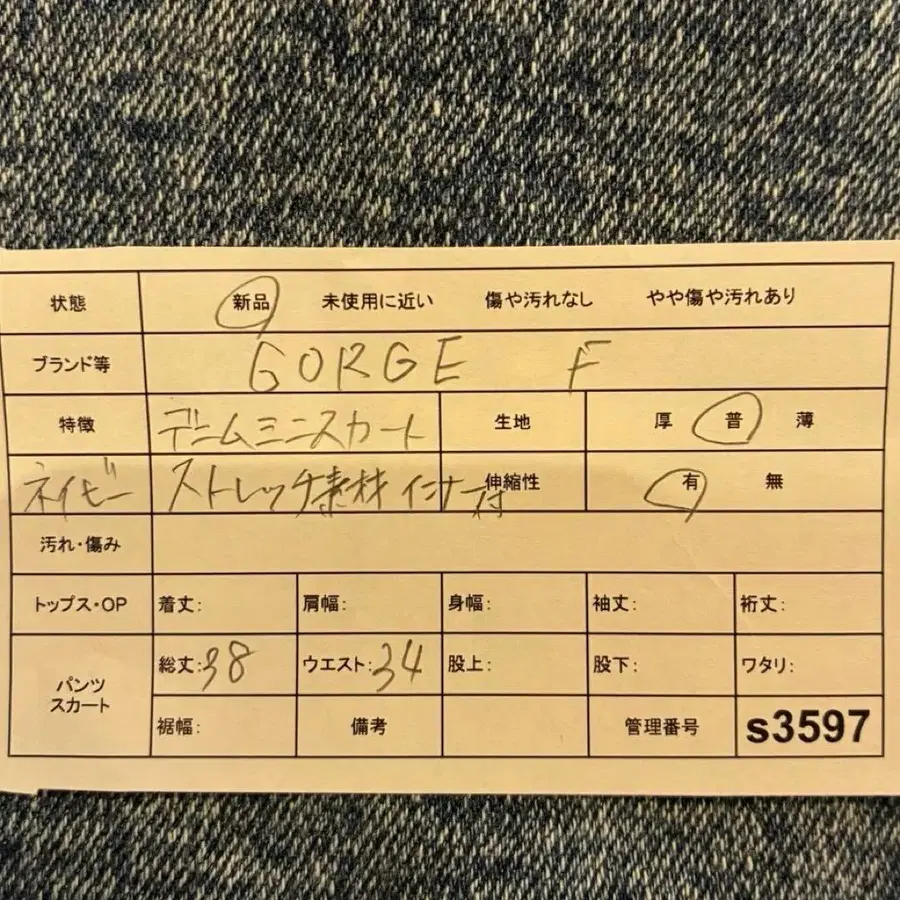 状態 新品 未使用に近い 傷や汚れなし やや傷や汚れあり
ブランド等 GORGE F
特徴 デニムミニスカート 生地 厚 普 薄
ネイビー ストレッチ素材 インナー付 伸縮性 有 無
汚れ・傷み
トップス・OP 着丈: 肩幅: 身幅: 袖丈: 裄丈:
パンツ スカート 総丈:38 ウエスト:34 股上: 股下: ワタリ:
裾幅: 備考 管理番号 s3597